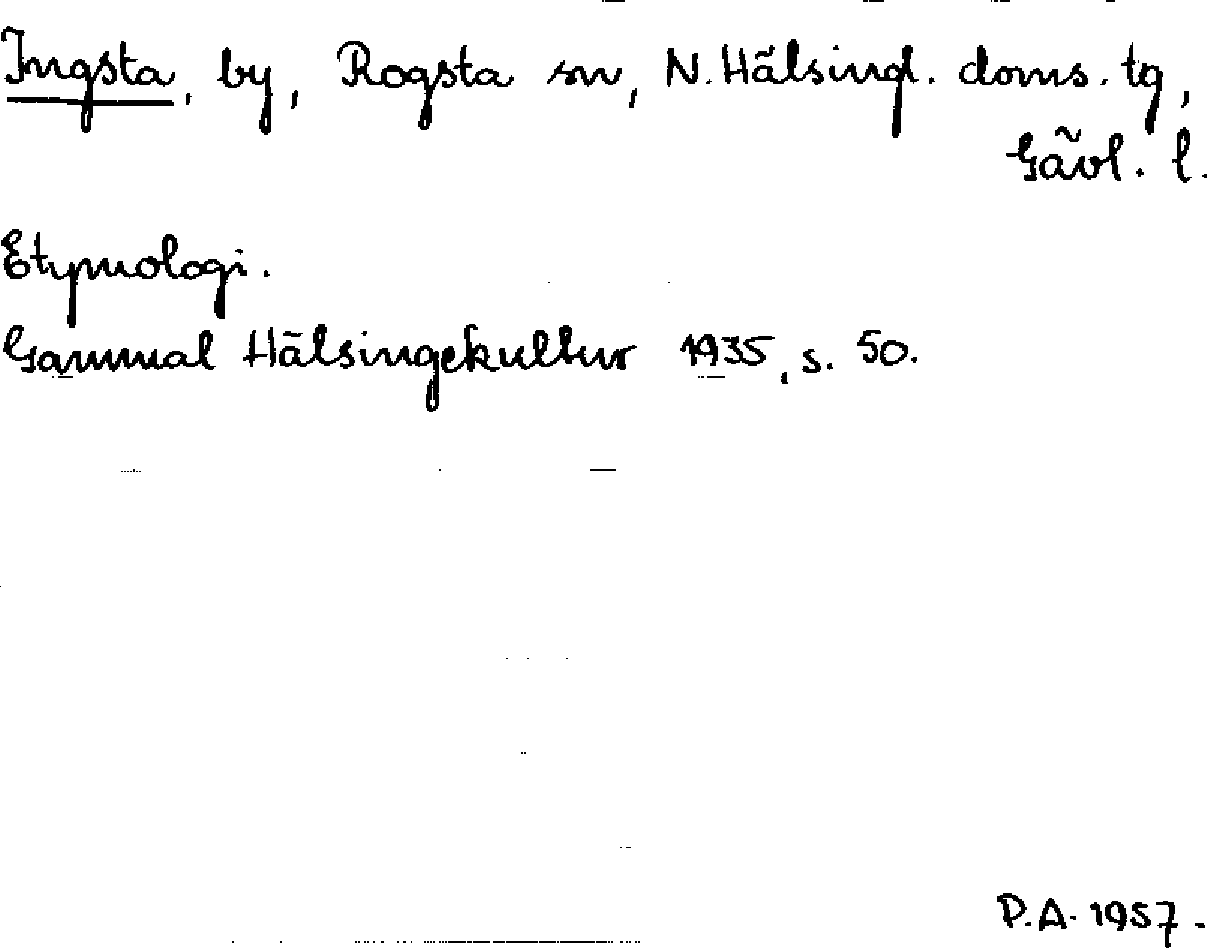 Ingsta, by, Rogsta sn, N. Hälsingl. doms. tg,
Gävl. l.
Etymologi.
Gammal Hälsingekultur 1935, s. 50.
P.A. 1957.